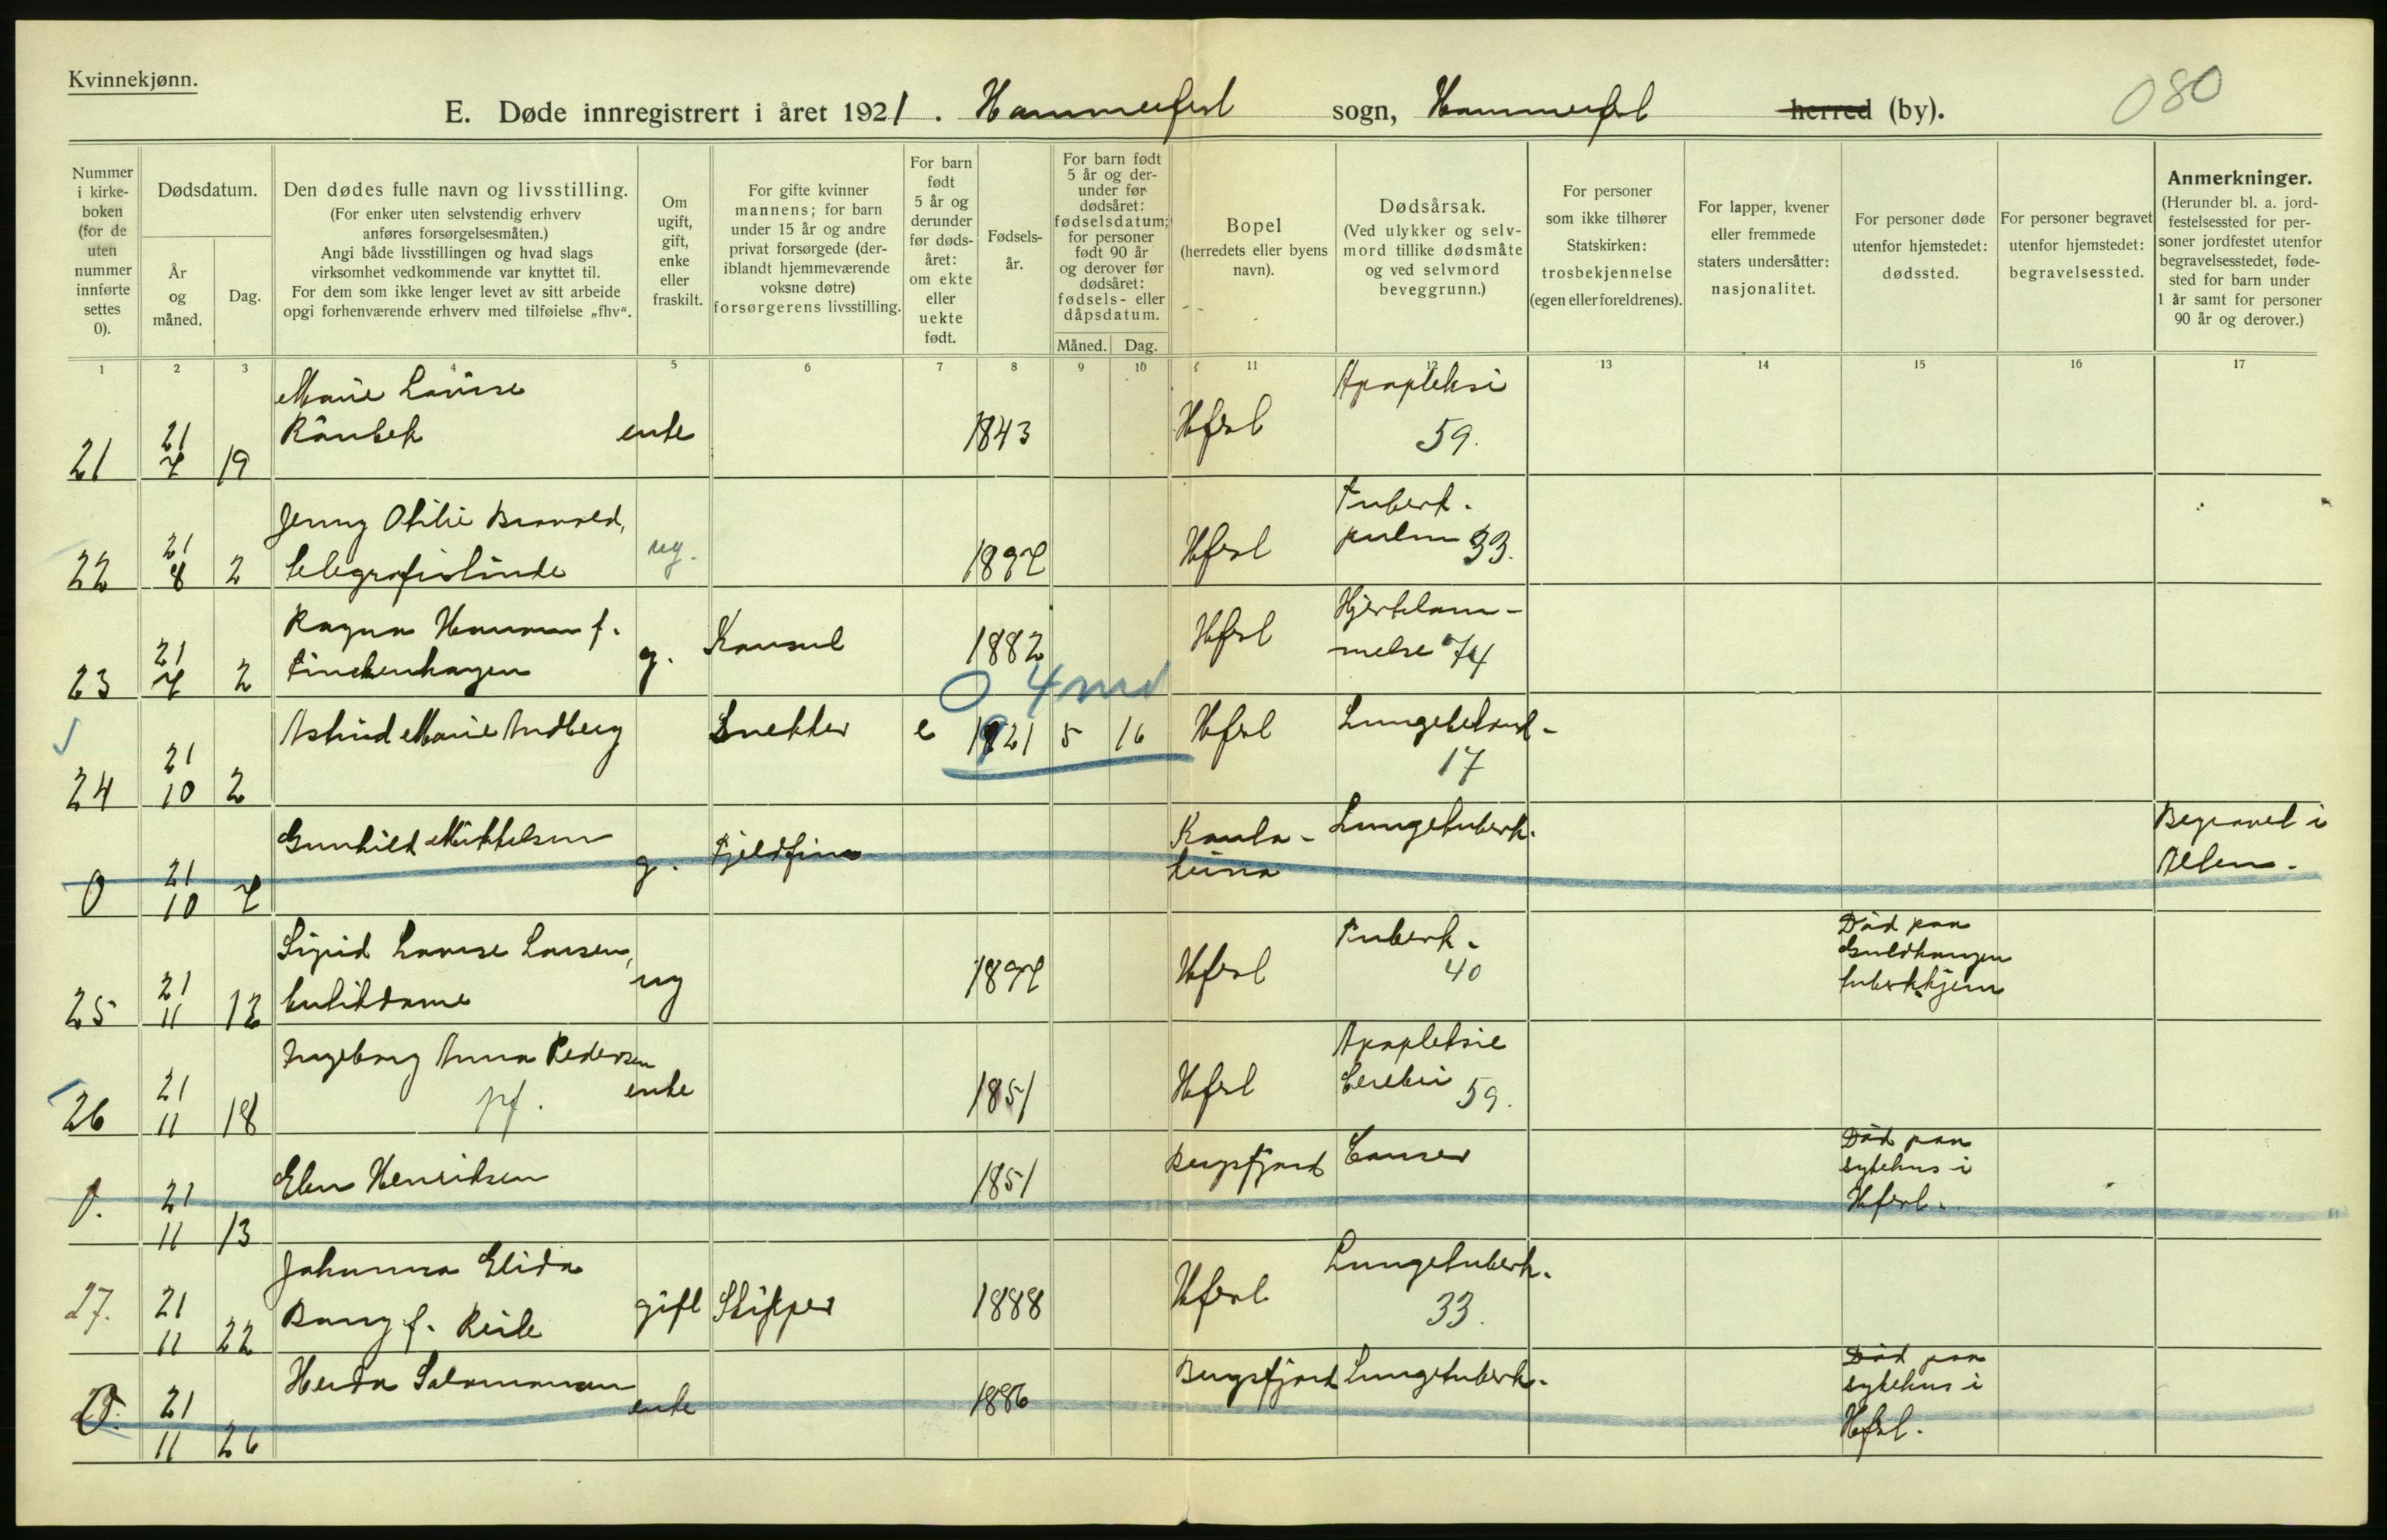 Kvinnekjønn.
E. Døde innregistrert i året 1921. Hammerfest sogn, Hammerfest herred (by).
080
Nummer i kirkeboken (for de uten nummer innførte settes 0).
Dødsdatum.
År og måned.
Dag.
Den dødes fulle navn og livsstilling.
(For enker uten selvstendig erhverv anføres forsørgelsesmåten.)
Angi både livsstillingen og hvad slags virksomhet vedkommende var knyttet til.
For dem som ikke lenger levet av sitt arbeide opgi forhenværende erhverv med tilføielse „fhv“.
Om ugift, gift, enke eller fraskilt.
For gifte kvinner mannens; for barn under 15 år og andre privat forsørgede (deriblandt hjemmeværende voksne døtre) forsørgerens livsstilling.
For barn født 5 år og derunder før dødsåret: om ekte eller uekte født.
Fødselsår.
For barn født 5 år og derunder før dødsåret: fødselsdatum; for personer født 90 år og derover før dødsåret: fødsels- eller dåpsdatum.
Måned. Dag.
Bopel (herredets eller byens navn).
Dødsårsak.
(Ved ulykker og selvmord tillike dødsmåte og ved selvmord beveggrunn.)
For personer som ikke tilhører Statskirken: trosbekjennelse (egen eller foreldrenes).
For lapper, kvener eller fremmede staters undersåtter: nasjonalitet.
For personer døde utenfor hjemstedet: dødssted.
For personer begravet utenfor hjemstedet: begravelsessted.
Anmerkninger.
(Herunder bl. a. jordfestelsessted for personer jordfestet utenfor begravelsesstedet, fødested for barn under 1 år samt for personer 90 år og derover.)
1 2 3 4 5 6 7 8 9 10 11 12 13 14 15 16 17
21 21/7 19 Marie Lovise Rånbek enke 1843 Hfest Apopleksi 59.
22 21/8 2 Jenny Otilie telegrafistinde ug. 1897 Hfest Tuberk. pulm 33.
23 21/7 2 Ragna f. Finckenhagen g. Konsul 1882 Hfest Hjertelammelse 74
0 4 md
24 21/10 2 Astrid Marie Andberg Snekker e 1921 5 16 Hfest 17
0 21/10 7 Gunhild Mikkelsen g. Fjeldfinn Kautokeino Lungetuberk. Begravet i
25 21/11 12 Sigrid Lovise Larsen, butikdame ug 1897 Hfest Tuberk. 40 Död paa Guldhaugen tuberk.hjem
26 21/11 18 Ingeborg Anna Pedersen pf. enke 1851 Hfest Apopleksie Cerebri 59.
0. 21/11 13 Elen Henriksen 1851 Bergsfjord Canser Död paa sykehus i Hfest.
27. 21/11 22 Johanna Elida Bang f. gift Skipper 1888 Hfest Lungetuberk. 33.
0. 21/11 26 Herda Salamonsen enke 1886 Bergsfjord Lungetuberk. Död paa sykehus i Hfest.